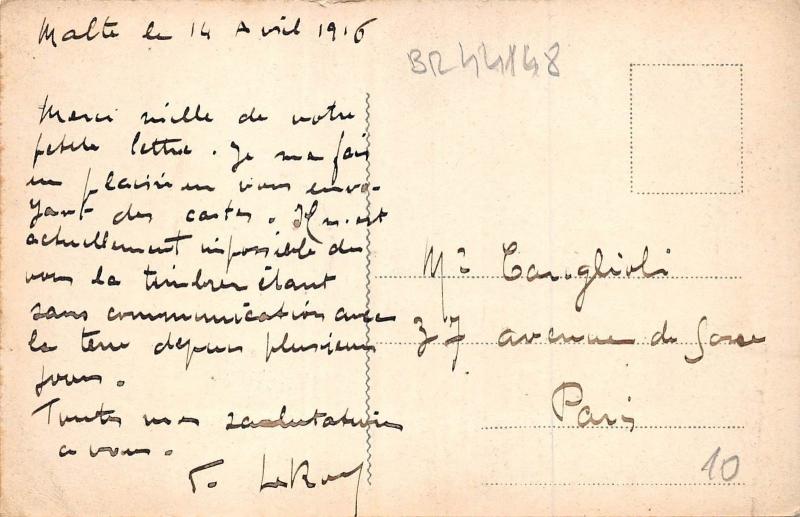 Malte le 14 Avril 1916
BR44148
Merci mille de votre
petite lettre. Je me fais
un plaisir en vous envo-
yant des cartes. Il m'est
actuellement impossible de
vous la timbrer étant
sans communication avec
la terre depuis plusieurs
jours.
Toutes mes salutations
a vous.
LeRoy
Mr
37 avenue de
Paris
10